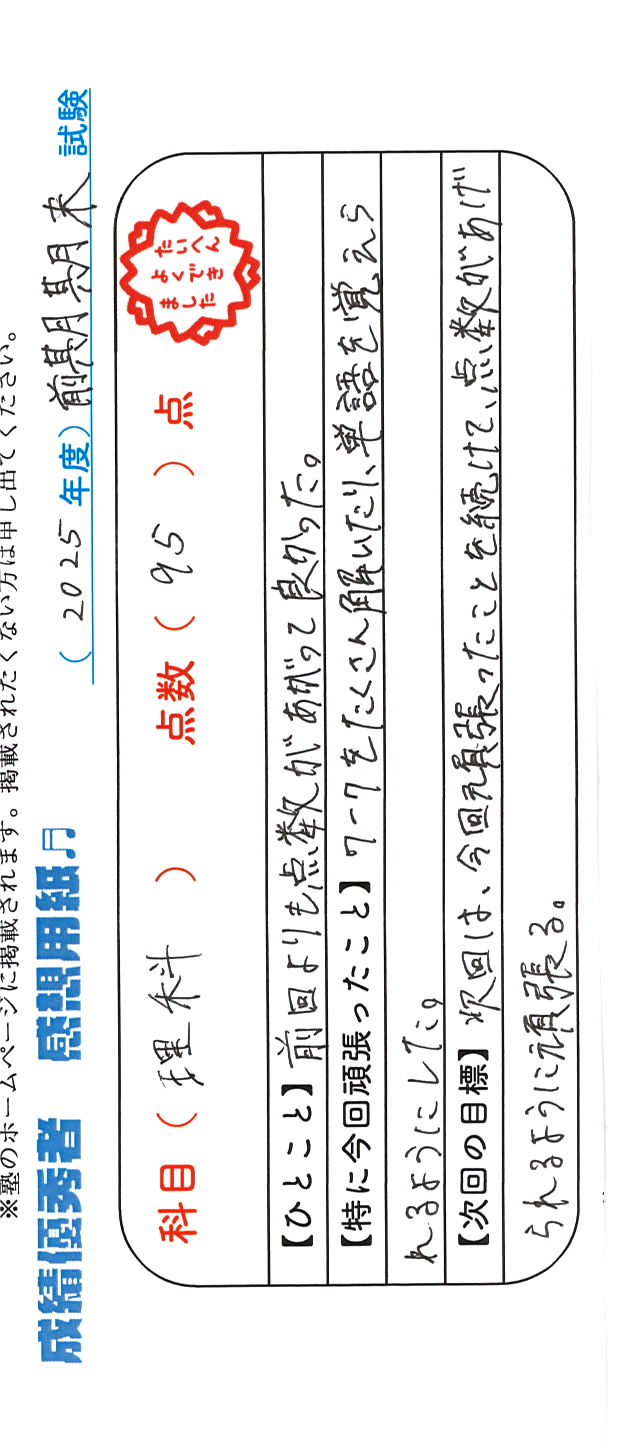 ※塾のホームページに掲載されます。掲載されたくない方は申し出てください。
成績優秀者 感想用紙♬ （2025年度）前期期末 試験
科目（理科） 点数（95）点
たいへん
よくでき
ました
【ひとこと】前回よりも点数があがって良かった。
【特に今回頑張ったこと】ワークをたくさん解いたり、単語を覚えら
れるようにした。
【次回の目標】次回は、今回頑張ったことを続けて、点数があげ
られるように頑張る。